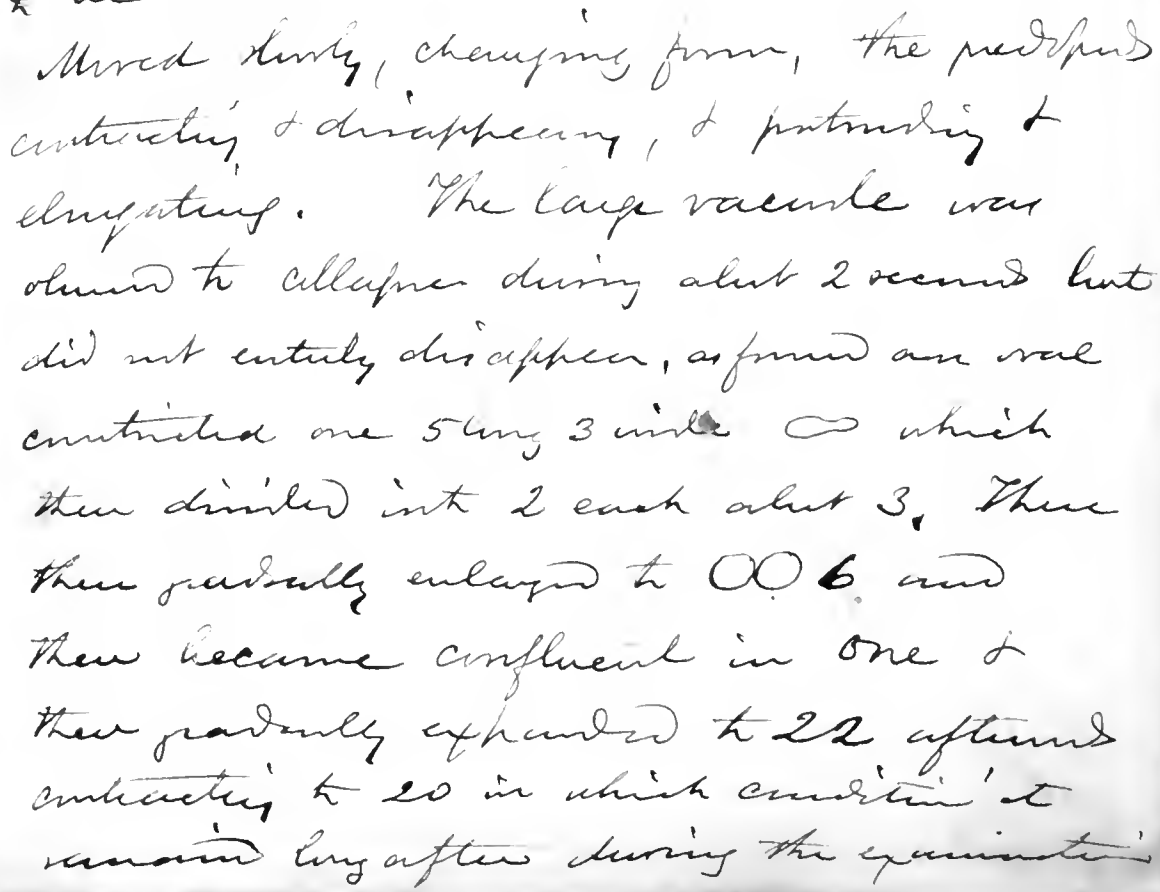 Moved slowly, changing form, the pseudopods
contracting & disappearing, & protruding &
elongating. The large vacuole was
observed to collapse during about 2 seconds but
did not entirely disappear, as formed an oval
constricted one 5 long 3 wide which
then divided into 2 each about 3. These
then gradually enlarged to OO 6 and
then became confluent in one &
then gradually expanded to 22 afterwards
contracting to 20 in which condition it
remained long after during the examination